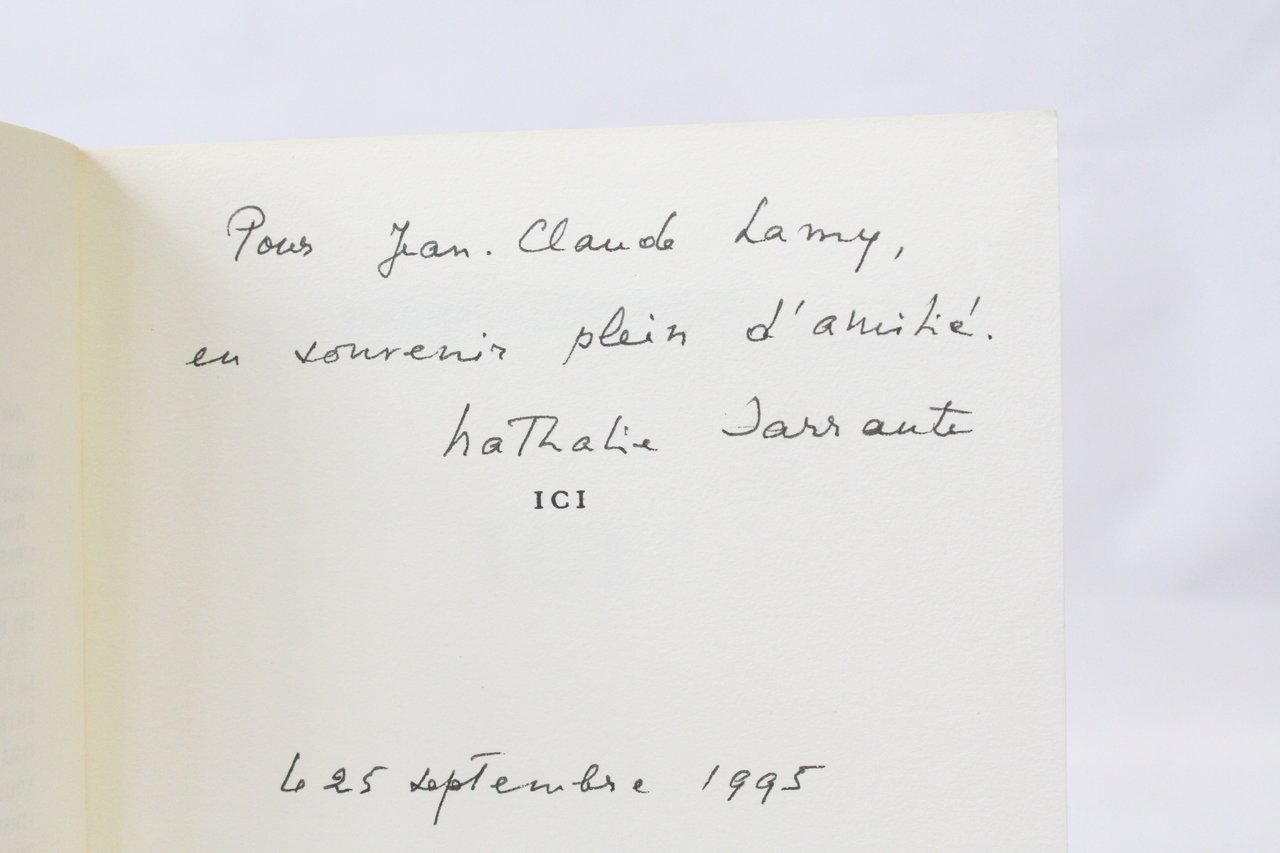 Pour Jean-Claude Lamy,
en souvenir plein d'amitié.
Nathalie Sarraute
ICI
le 25 septembre 1995